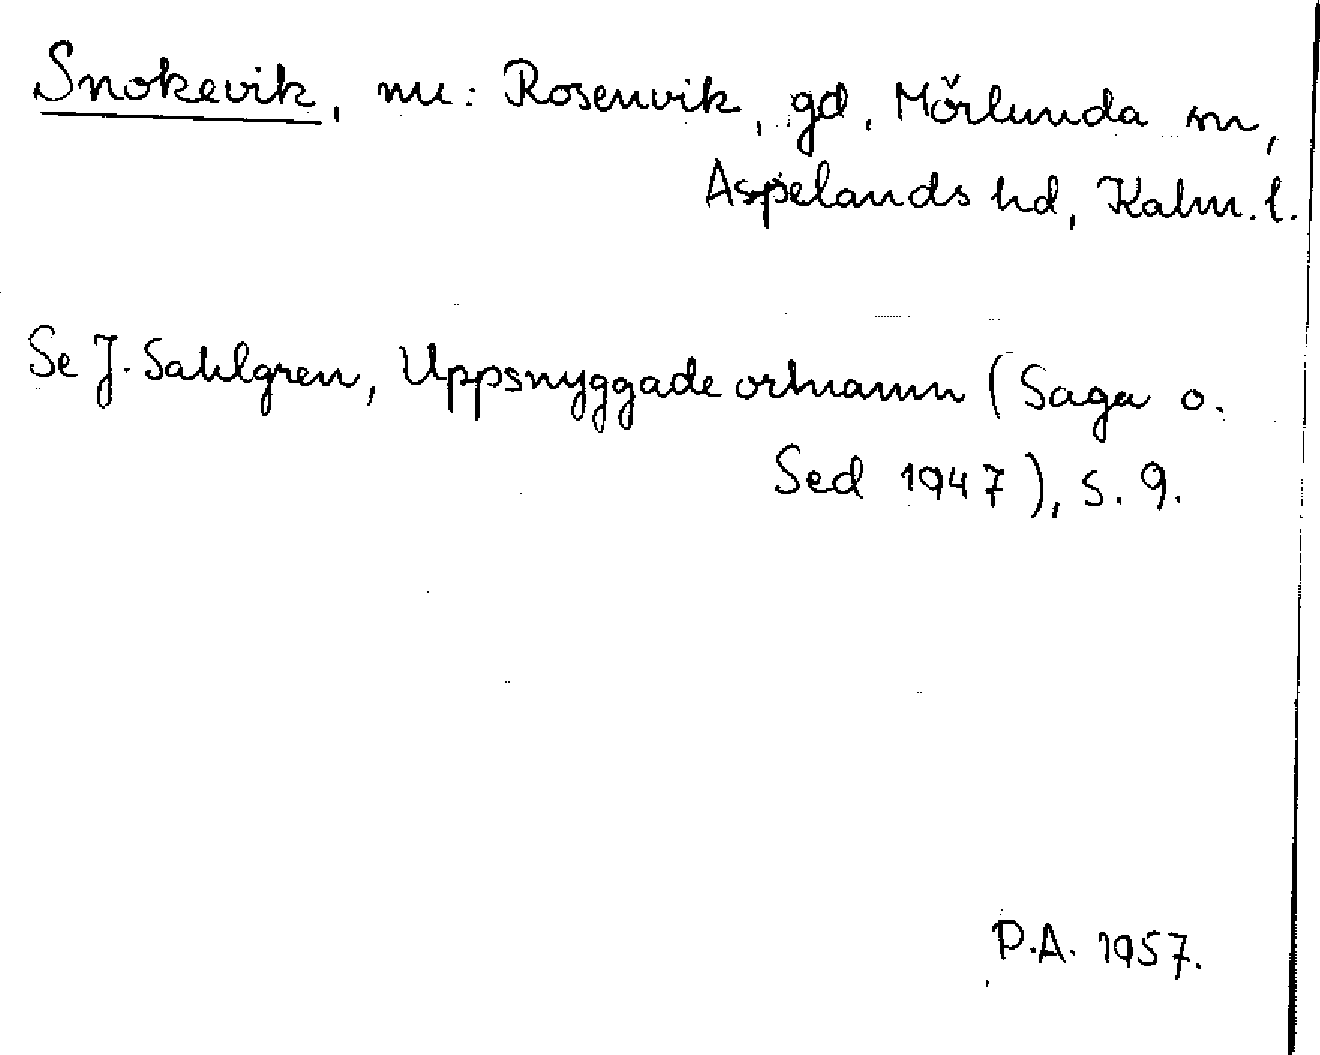 Snokevik, nu: Rosenvik, gd, Mörlunda sn,
Aspelands hd, Kalm. l.
Se J. Sahlgren, Uppsnyggade ortnamn (Saga o.
Sed 1947), s. 9.
P.A. 1957.